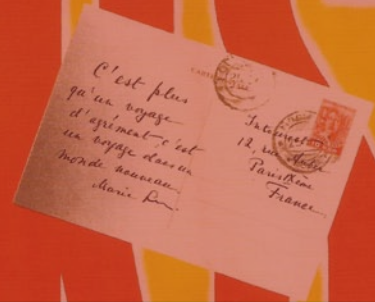 C'est plus
qu'un voyage
d'agrément, c'est
un voyage dans un
monde nouveau
Marie
12, rue
Paris IXème
France